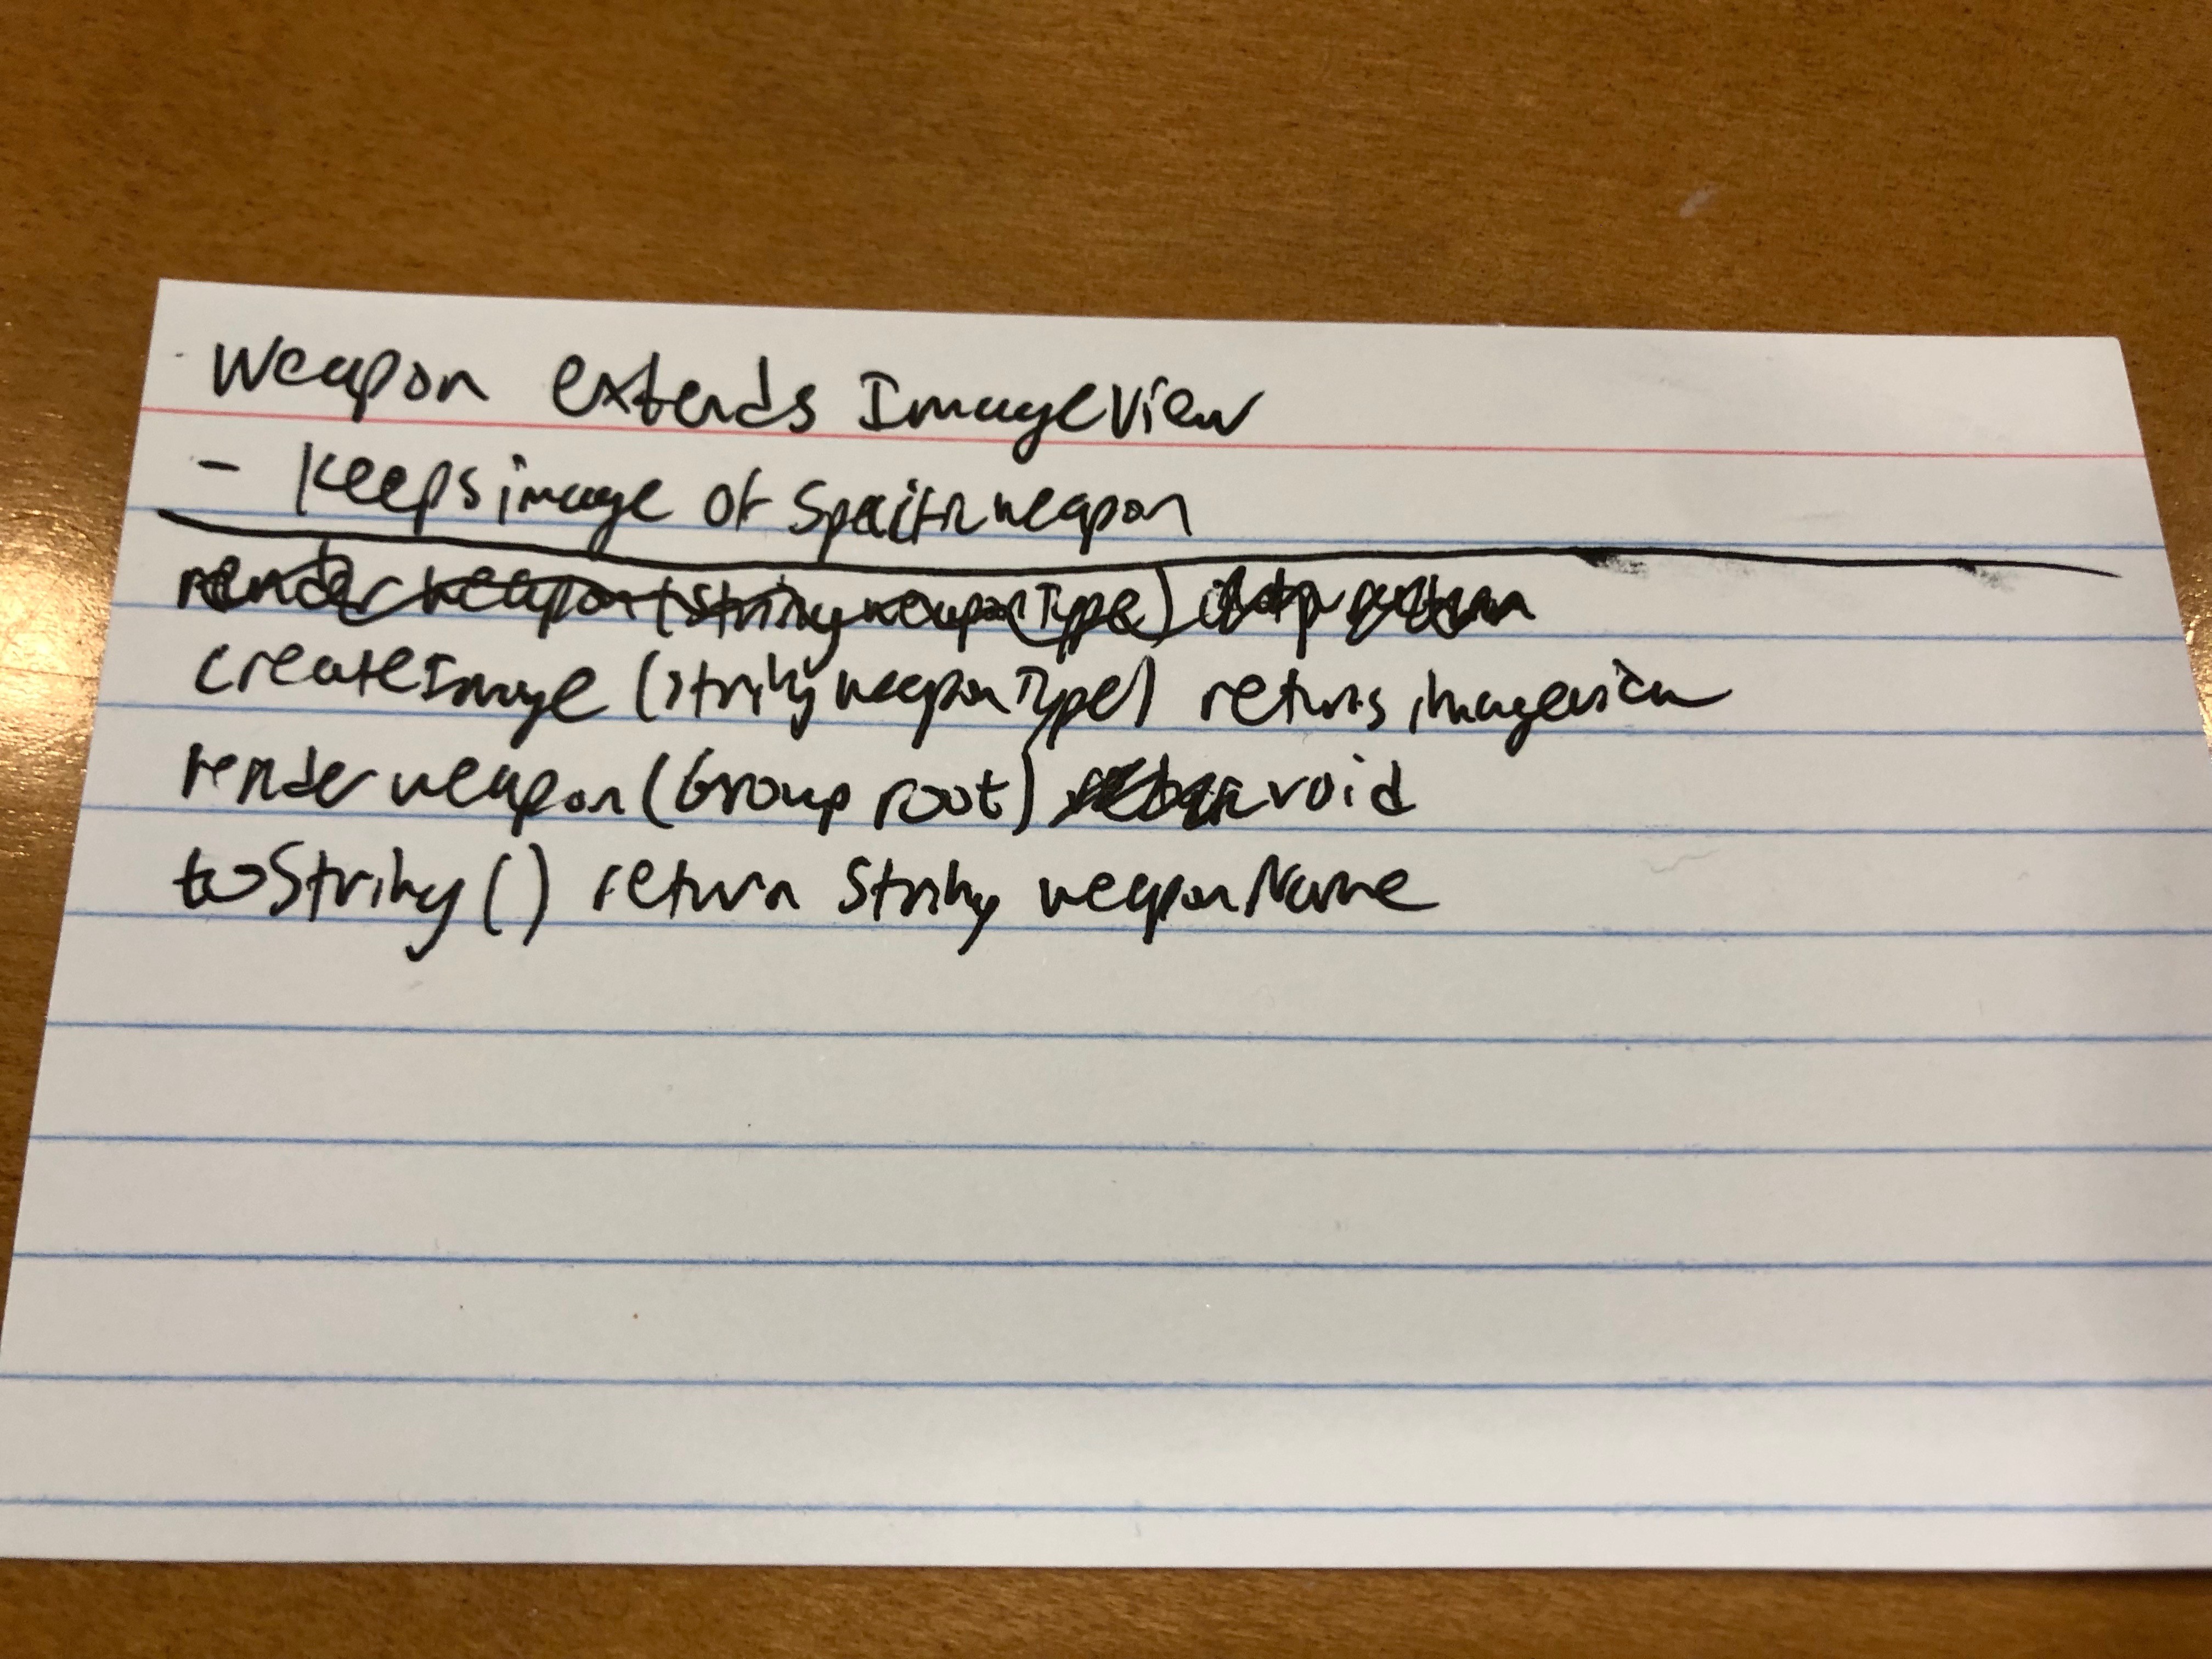 Weapon extends ImageView
- Keeps image of specific weapon
render weapon (String weaponType)
createImage (String weaponType) returns imageview
render weapon (Group root) void
toString() return String weaponName